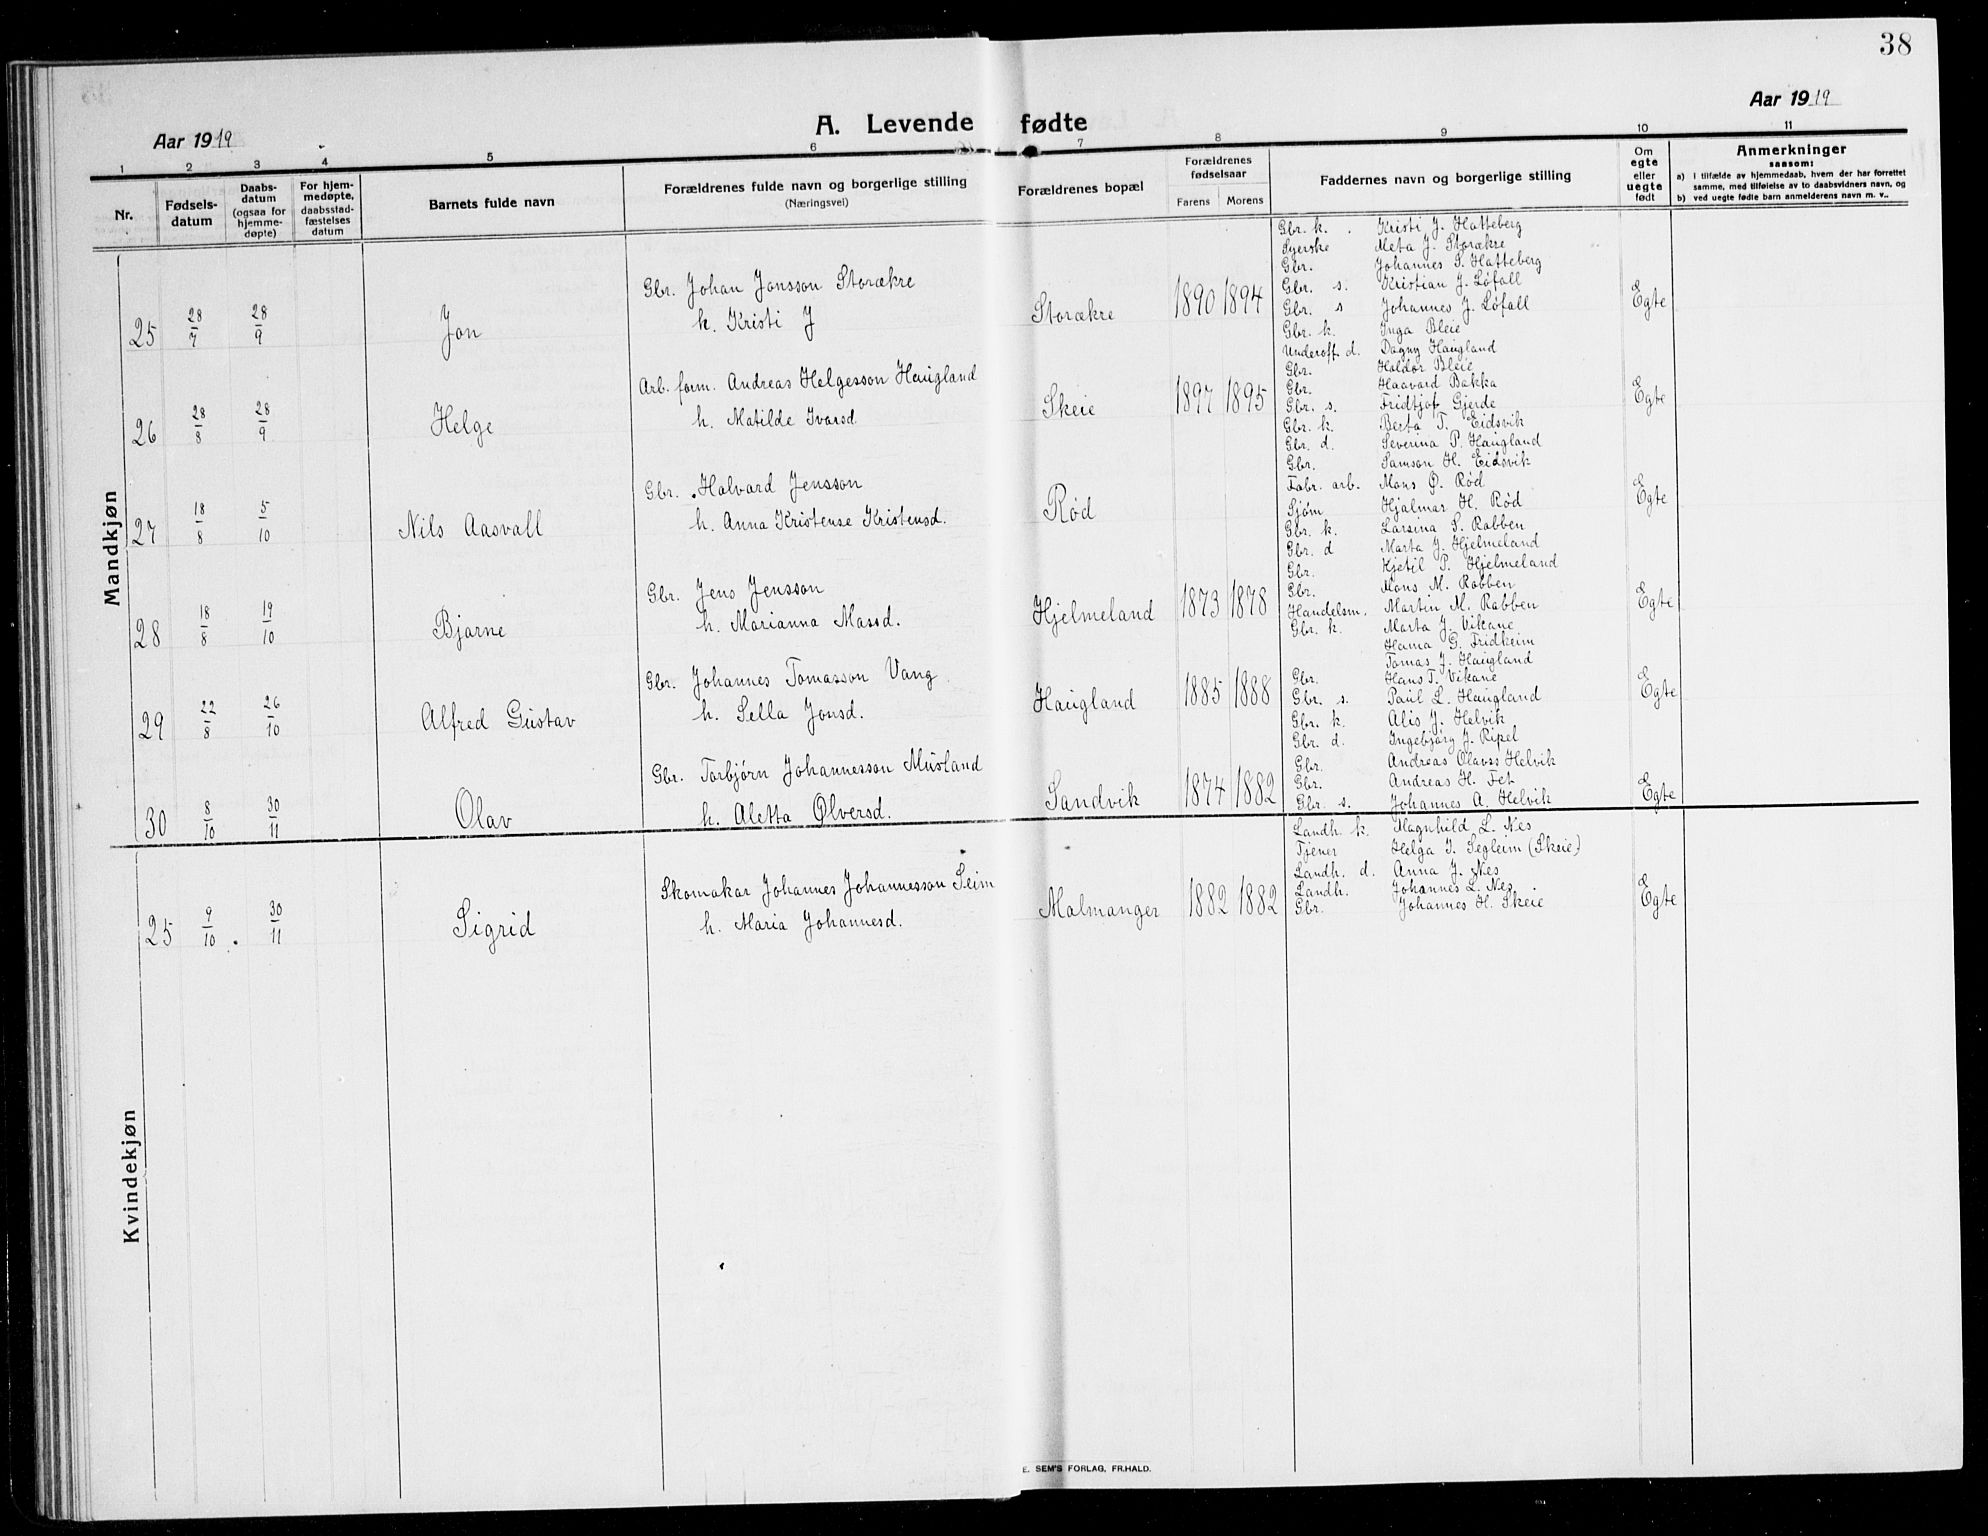 38
Aar 1919
A. Levende fødte
Aar 1919
1 2 3 4 5 6 7 8 9 10 11
Nr.
Fødsels-
datum
Daabs-
datum
(ogsaa for
hjemme-
døpte)
For hjem-
medøpte,
daabsstad-
fæstelses
datum
Barnets fulde navn
Forældrenes fulde navn og borgerlige stilling
(Næringsvei)
Forældrenes bopæl
Forældrenes
fødselsaar
Farens Morens
Faddernes navn og borgerlige stilling
Om
egte
eller
uegte
født
Anmerkninger
saasom:
a) i tilfælde av hjemmedaab, hvem der har forrettet
samme, med tilføielse av to daabsvidners navn, og
b) ved uegte fødte barn anmelderens navn m. v..
Mandkjøn
25 28/7 28/9 Jon
Gbr. Johan Jonsson Storækre
k. Kristi J
Storækre 1890 1894
Gbr. k. Kristi J. Hatteberg
Syerske Meta J. Storækre
Gbr. Johannes S. Hatteberg
Gbr. s. Kristian J. Løfall
Gbr. s Johannes J. Løfall
Egte
26 28/8 28/9 Helge
Arb. form. Andreas Helgesson Haugland
h. Matilde Ivarsd.
Skeie 1897 1895
Gbr. k. Inga Bleie
Underoff. d. Dagny Haugland
Gbr. Haldor Bleie
Gbr. Haavard Bakka
Gbr. s. Fridtjof Gjerde
Egte
27 18/8 5/10 Nils Aasvall
Gbr. Halvard Jensson
h. Anna Kristense Kristensd.
Rød
Gbr. k. Berta T. Eidsvik
Gbr. d. Severina P. Haugland
Gbr. Samson H. Eidsvik
Fabr. arb. Mons Ø. Rød
Sjøm Hjalmar H. Rød
Egte
28 18/8 19/10 Bjarne
Gbr. Jens Jensson
h. Marianna Massd.
Hjelmeland 1873 1878
Gbr. k. Larsina S. Rabben
Gbr. d Marta J. Hjelmeland
Gbr. Kjetil P. Hjelmeland
Gbr. Mons M. Rabben
Handelsm. Martin M. Rabben
Egte
29 22/8 26/10 Alfred Gustav
Gbr. Johannes Tomasson Vang
h. Sella Jonsd.
Haugland 1885 1888
Gbr. k. Marta J. Vikane
Hama G. Fridheim
Tomas J. Haugland
Gbr. Hans T. Vikane
Gbr. s. Paul L. Haugland
Egte
30 8/10 30/11 Olav
Gbr. Torbjørn Johannesson Musland
h. Aletta Ølversd.
Sandvik 1874 1882
Gbr. k. Alis J. Helvik
Gbr. d. Ingebjørg J. Ripel
Gbr. Andreas Olavss Helvik
Gbr. Andreas H. Fet
Gbr. s. Johannes A. Helvik
Egte
Kvindekjøn
25 9/10 30/11 Sigrid
Skomakar Johannes Johannesson Seim
h. Maria Johannesd.
Malmanger 1882 1882
Landh. k. Magnhild L. Nes
Tjener Helga I. Segleim (Skeie)
Landh. d. Anna J. Nes
Landh. Johannes L. Nes
Gbr. Johannes H. Skeie
Egte
E. SEM'S FORLAG, FR.HALD.